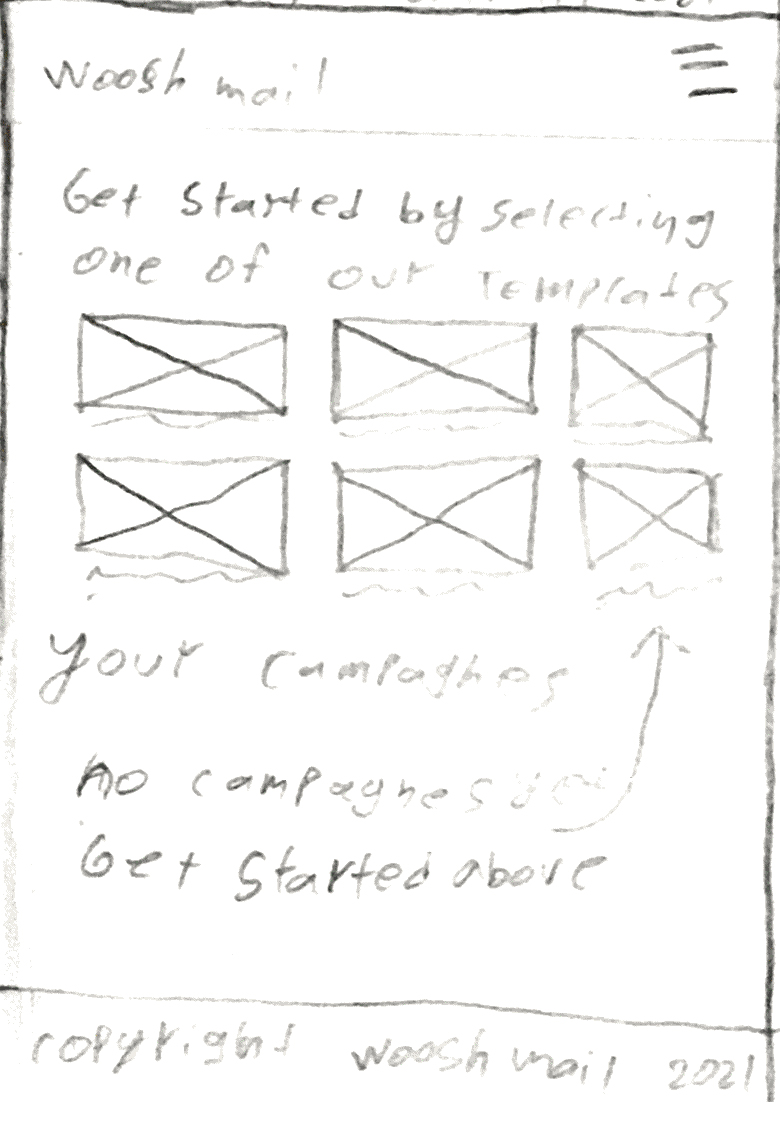 Woosh mail
Get Started by selecting
one of our Templates
Your campaghes
No campaghes yet
Get Started above
copyright woosh mail 2021